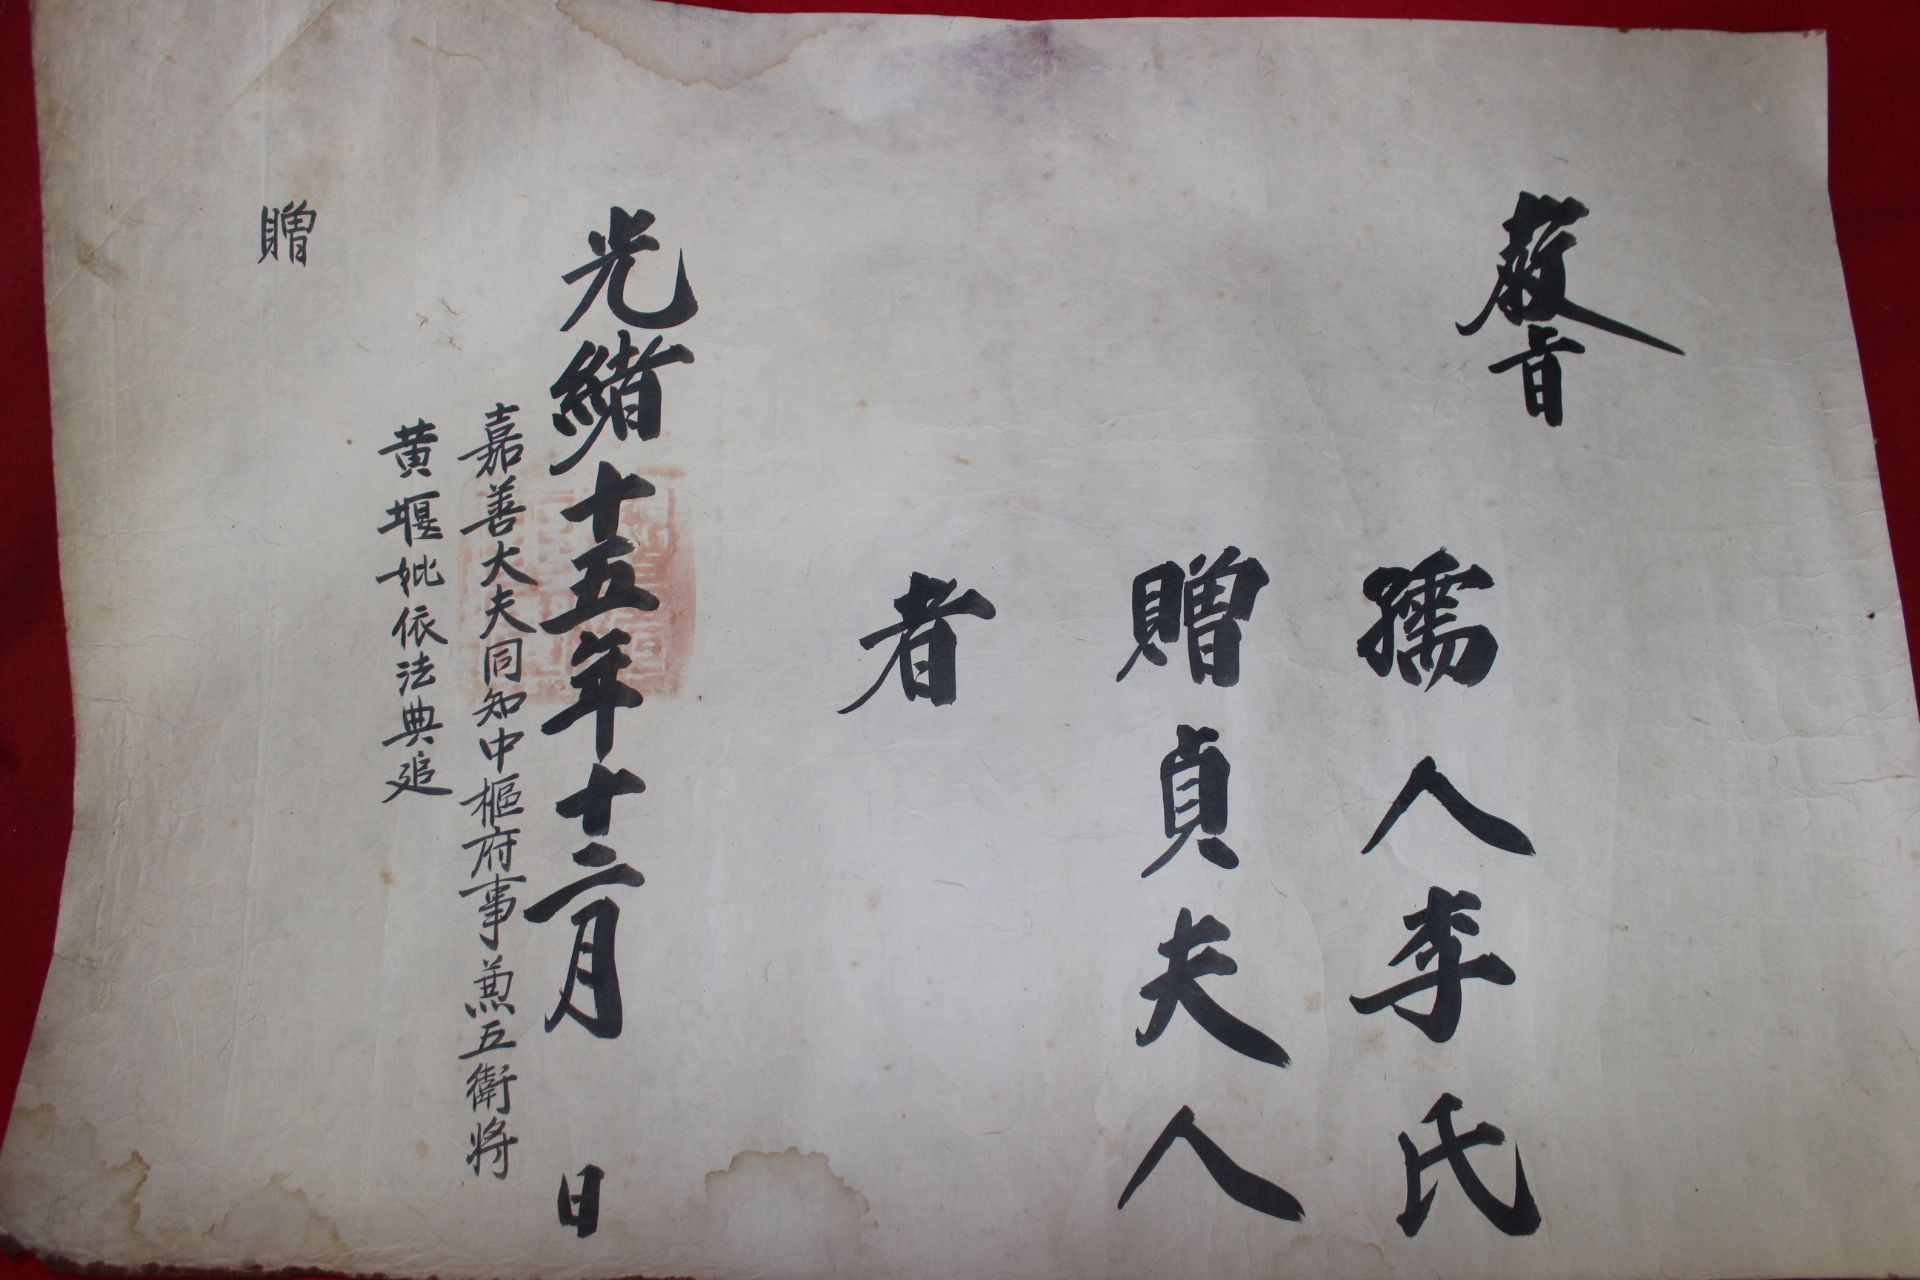 教旨
孺人李氏
贈貞夫人
者
光緖十五年十二月 日
嘉善大夫同知中樞府事兼五衛將
黃堰妣依法典追
贈